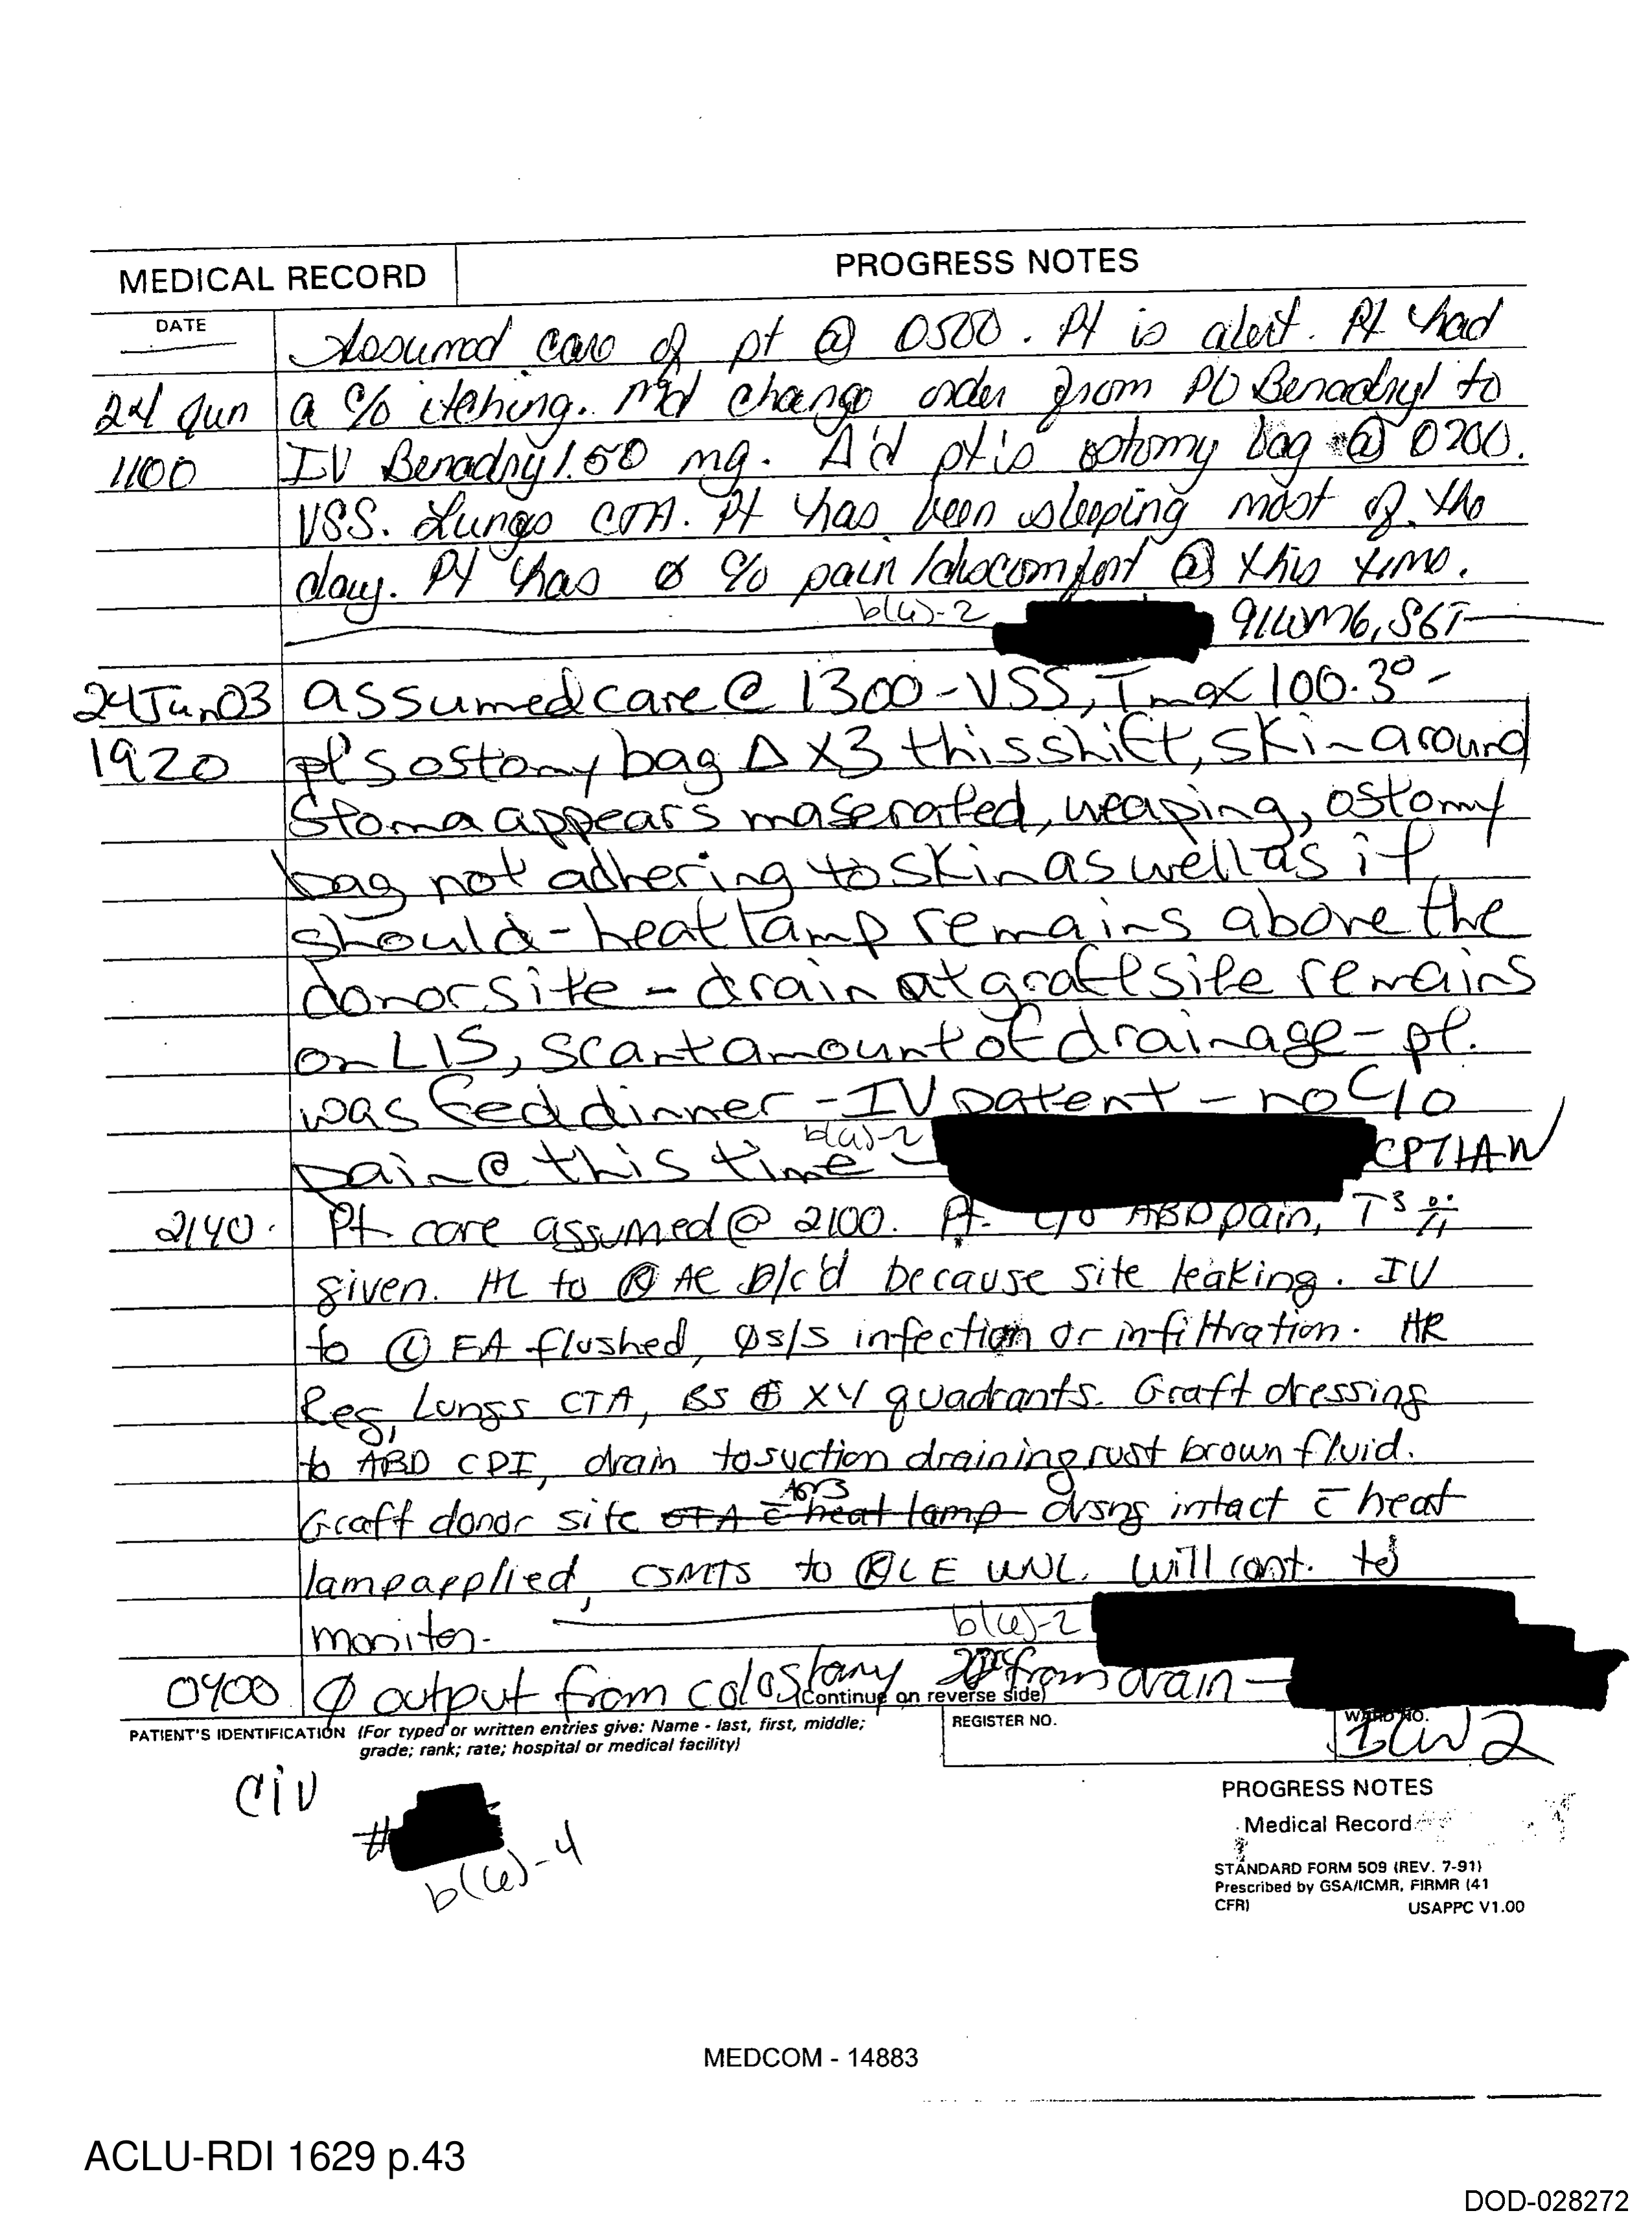 MEDICAL RECORD
PROGRESS NOTES
DATE
Assumed care of pt @ 0500. Pt is alert. Pt had
24 Jun a c/o itching. Md change order from PO Benadryl to
1100 IV Benadryl 50 mg. A'd pt's ostomy bag @ 0200.
VSS. Lungs CTA. Pt has been sleeping most of the
day. Pt has ø c/o pain/discomfort @ this time.
b(6)-2 91WM6, SGT
24 Jun 03 assumed care @ 1300 - VSS, Tmax 100.3° -
1920 pt's ostomy bag Δ X3 this shift, skin around
stoma appears maserated, weaping, ostomy
bag not adhering to skin as well as it
should - heat lamp remains above the
donor site - drain at graft site remains
on LIS, scant amount of drainage - pt.
was fed dinner - IV patent - no c/o
pain @ this time - b(6)-2 CPT/AN
2140. Pt care assumed @ 2100. Pt. c/o ABD pain, T3 ii
given. HL to Ⓡ AC D/c'd because site leaking. IV
to Ⓛ FA flushed, Øs/s infection or infiltration. HR
Reg, Lungs CTA, BS ⊕ X4 quadrants. Graft dressing
to ABD CDI, drain to suction draining rust brown fluid.
Graft donor site OTA c̄ heat lamp drsng intact c̄ heat
lamp applied, CSMTS to ⓇLE WNL. Will cont. to
monitor. b(6)-2
0400 Ø output from colostomy from drain -
(Continue on reverse side)
PATIENT'S IDENTIFICATION (For typed or written entries give: Name - last, first, middle;
grade; rank; rate; hospital or medical facility)
REGISTER NO.
WARD NO.
ICW2
CIV
#
b(6)-4
PROGRESS NOTES
Medical Record
STANDARD FORM 509 (REV. 7-91)
Prescribed by GSA/ICMR, FIRMR (41
CFR)
USAPPC V1.00
MEDCOM - 14883
ACLU-RDI 1629 p.43
DOD-028272